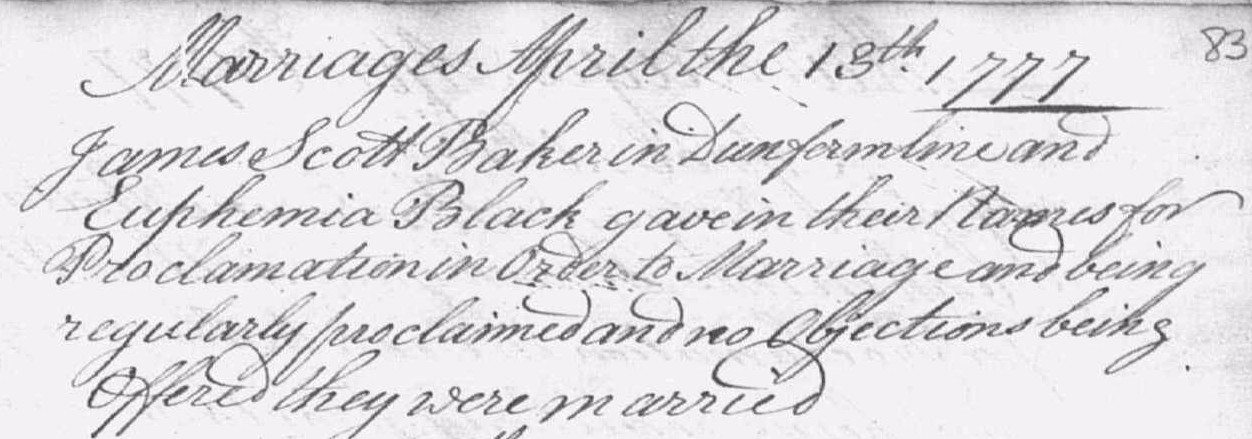 Marriages April the 13th. 1777 83
James Scott Baker in Dunfermline and
Euphemia Black gave in their Names for
Proclamation in Order to Marriage and being
regularly proclaimed and no Objections being
Offered they were married